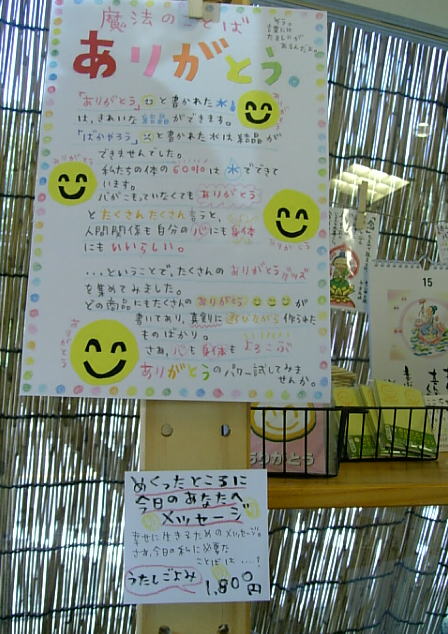 魔法のことば
ありがとう
「ありがとう」と書かれた水
は、きれいな結晶ができます。
「ばかやろう」と書かれた水は結晶が
できませんでした。
私たちの体の60%は水でできて
います。
心がこもっていなくてもありがとう
とたくさんたくさん言うと、
人間関係も自分の心にも身体
にもいいらしい。
...ということで、たくさんのありがとうグッズ
を集めてみました。
どの商品にもたくさんのありがとうが
書いてあり、真剣に遊びながら作られた
ものばかり。
さあ、心も身体もよろこぶ
ありがとうのパワー試してみま
せんか。
ありがとう
ありがとう
ありがとう
15
ありがとう
めくったところに
今日のあなたへ
メッセージ
幸せに生きるためのメッセージ。
さあ、今日の私に必要な
ことばは...?
うたしごよみ
1,800円